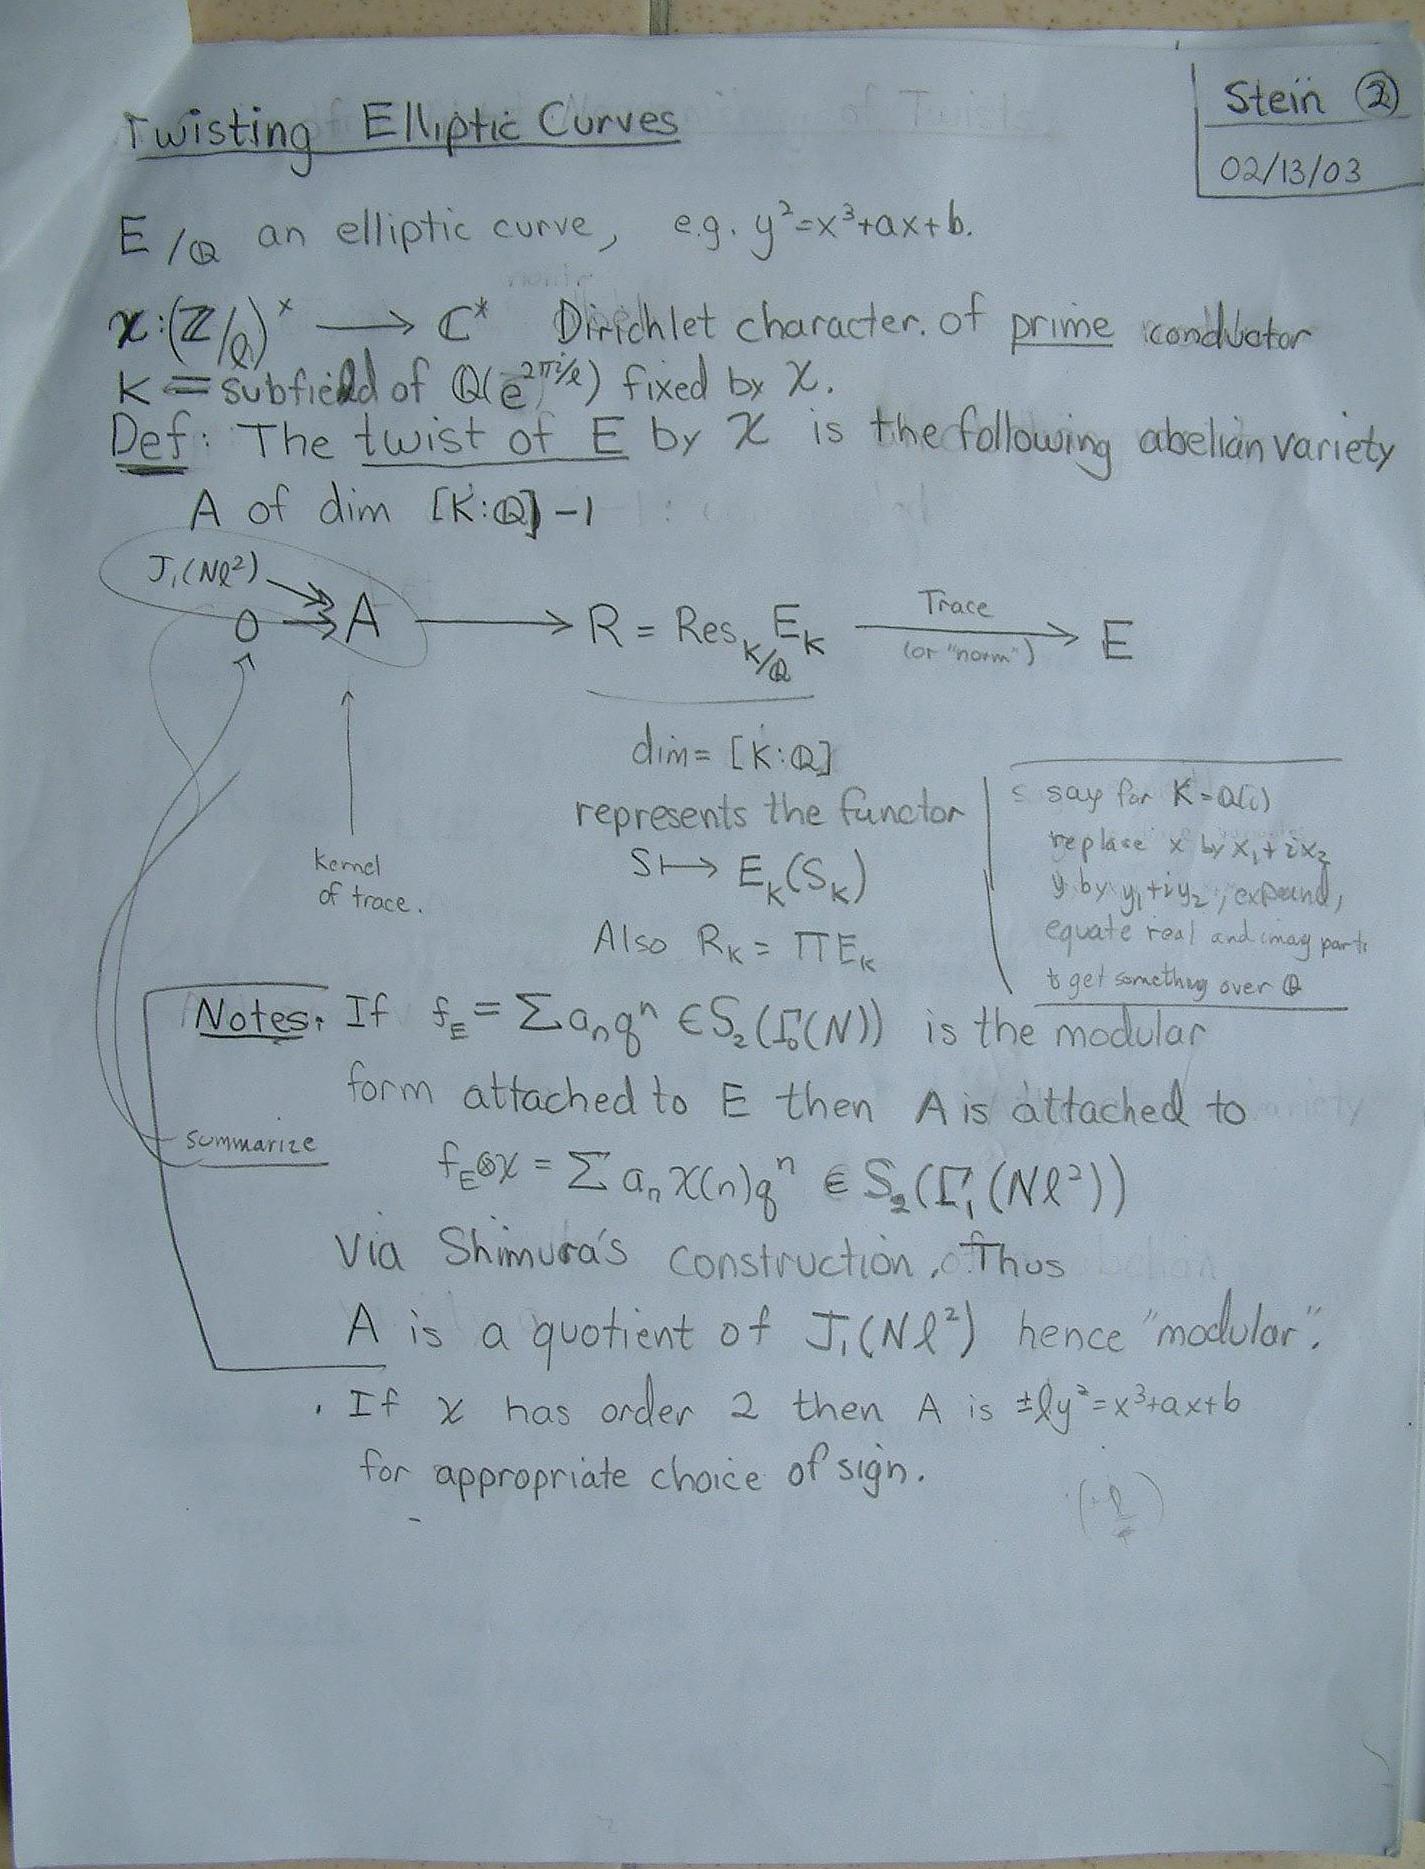 Twisting Elliptic Curves
Stein ②
02/13/03
E/ℚ an elliptic curve, e.g. y²=x³+ax+b.
χ:(ℤ/ℓ)ˣ ⟶ ℂ* Dirichlet character. of prime conductor
K = subfield of ℚ(e^{2πi/ℓ}) fixed by χ.
Def: The twist of E by χ is the following abelian variety
A of dim [K:ℚ]-1
J₁(Nℓ²)
0 → A ⟶ R = Res_{K/ℚ} E_K ⟶ E
Trace
(or "norm")
kernel
of trace.
dim= [K:ℚ]
represents the functor
S ↦ E_K(S_K)
Also R_K = ΠE_K
say for K=ℚ(i)
replace x by x₁+ix₂
y by y₁+iy₂, expand,
equate real and imag parts
to get something over ℚ
Notes. If f_E = Σ aₙqⁿ ∈ S₂(Γ₀(N)) is the modular
form attached to E then A is attached to
summarize
f_E⊗χ = Σ aₙχ(n)qⁿ ∈ S₂(Γ₁(Nℓ²))
via Shimura's construction. Thus
A is a quotient of J₁(Nℓ²) hence "modular".
. If χ has order 2 then A is ±ℓy²=x³+ax+b
for appropriate choice of sign.